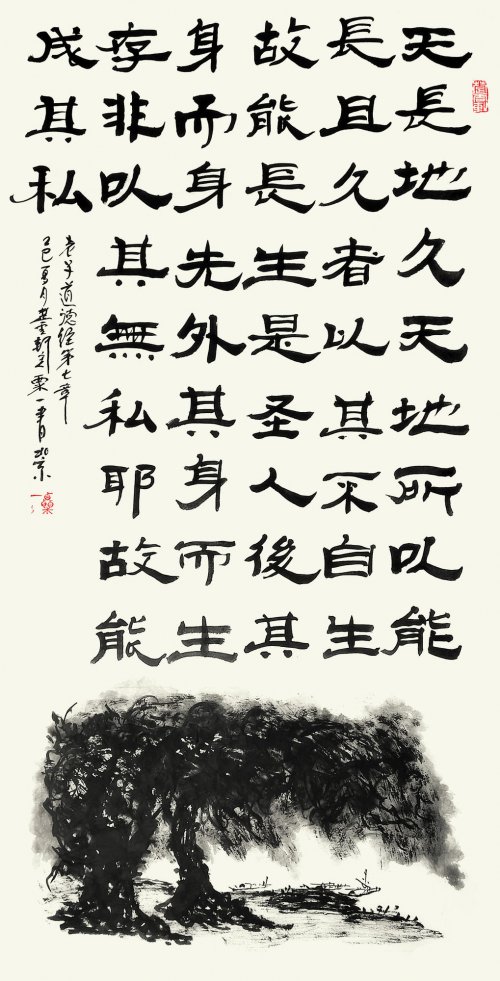 天長地久天地所以能
長且久者以其不自生
故能長生是圣人後其
身而身先外其身而生
存非以其無私耶故能
成其私
老子道德經第七章
巳夏月